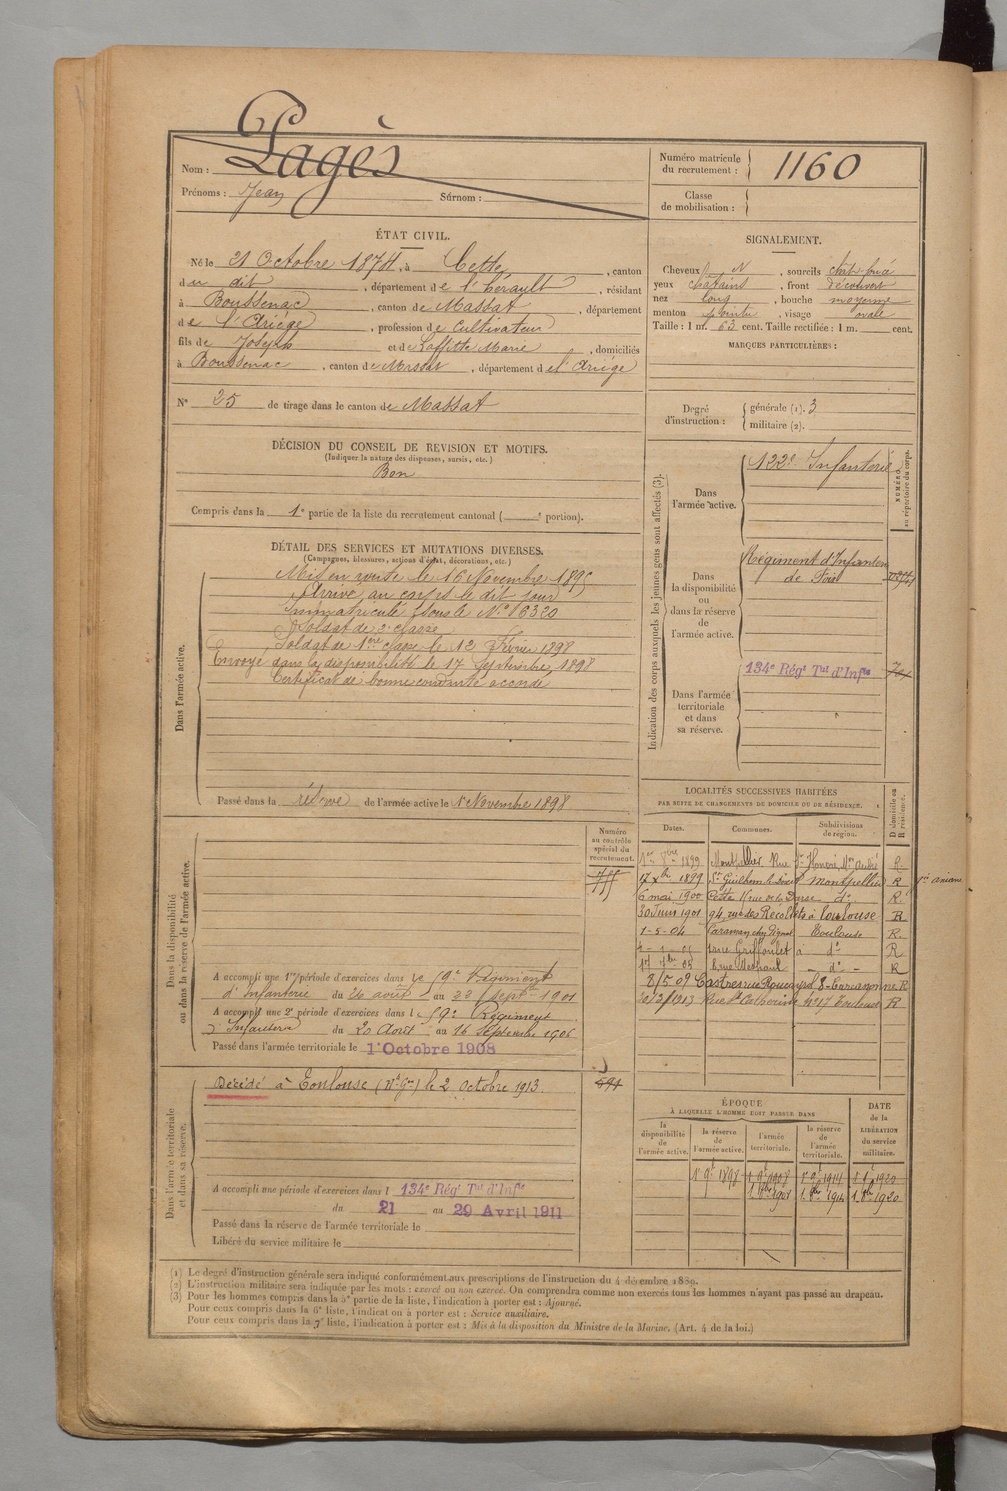 Nom : Pagès
Prénoms : Jean Surnom :
Numéro matricule du recrutement : 1160
Classe de mobilisation :
ÉTAT CIVIL.
Né le 21 Octobre 1874, à Cette, canton
du dit, département de l'Hérault, résidant
à Boussenac, canton de Massat, département
de l'Ariège, profession de Cultivateur
fils de Joseph et de Laffitte Marie, domiciliés
à Boussenac, canton de Massat, département de l'Ariège
N° 25 de tirage dans le canton de Massat
DÉCISION DU CONSEIL DE REVISION ET MOTIFS.
(Indiquer la nature des dispenses, sursis, etc.)
Bon
Compris dans la 1e partie de la liste du recrutement cantonal ( e portion).
SIGNALEMENT.
Cheveux N, sourcils chât. foncé
yeux chatains, front découvert
nez long, bouche moyenne
menton pointu, visage ovale
Taille : 1 m. 63 cent. Taille rectifiée : 1 m. cent.
MARQUES PARTICULIÈRES :
Degré d'instruction : générale (1). 3
militaire (2).
DÉTAIL DES SERVICES ET MUTATIONS DIVERSES.
(Campagnes, blessures, actions d'éclat, décorations, etc.)
Dans l'armée active.
Mis en route le 16 Novembre 1895
Arrivé au corps le dit jour
Immatriculé sous le N° 16320
Soldat de 2e classe
Soldat de 1ère classe le 12 Février 1898
Envoyé dans la disponibilité le 17 Septembre 1898
Certificat de bonne conduite accordé
Passé dans la réserve de l'armée active le 1er Novembre 1898
Indication des corps auxquels les jeunes gens sont affectés (3).
NUMÉRO au répertoire du corps.
Dans l'armée active.
122e Infanterie
Dans la disponibilité ou dans la réserve de l'armée active.
Régiment d'Infanterie
de Foix
Dans l'armée territoriale et dans sa réserve.
134e Régt Tal d'Infie
Dans la disponibilité ou dans la réserve de l'armée active.
Numéro au contrôle spécial du recrutement.
A accompli une 1re période d'exercices dans le 59e Régiment
d'Infanterie du 26 août au 22 sept 1901
A accompli une 2e période d'exercices dans le 59e Régiment
d'Infanterie du 20 Août au 16 Septembre 1906
Passé dans l'armée territoriale le 1 Octobre 1908
LOCALITÉS SUCCESSIVES HABITÉES
PAR SUITE DE CHANGEMENTS DE DOMICILE OU DE RÉSIDENCE.
Dates. Communes. Subdivisions de région. D domicile ou R résidence.
1er 8bre 1899 Montpellier Rue St Honoré, Mon André R
17 Xbre 1899 St Guilhem le Désert Montpellier R
6 mai 1900 Cette rue de la Darse do R
30 Juin 1901 94, rue des Récollets à Toulouse R
1-5-04 Caraman Toulouse R
rue Griffoulet à do R
do R
8/5 09 Castres 8 - Carcassonne R
Rue Ste Catherine N°17 Toulouse R
Dans l'armée territoriale et dans sa réserve.
Décédé à Toulouse (Hte Gne) le 2 Octobre 1913
A accompli une période d'exercices dans l 134e Régt Tal d'Infie
du 21 au 29 Avril 1911
Passé dans la réserve de l'armée territoriale le
Libéré du service militaire le
ÉPOQUE
À LAQUELLE L'HOMME DOIT PASSER DANS
la disponibilité de l'armée active. la réserve de l'armée active. l'armée territoriale. la réserve de l'armée territoriale. DATE de la LIBÉRATION du service militaire.
(1) Le degré d'instruction générale sera indiqué conformément aux prescriptions de l'instruction du 4 décembre 1889.
(2) L'instruction militaire sera indiquée par les mots : exercé ou non exercé. On comprendra comme non exercés tous les hommes n'ayant pas passé au drapeau.
(3) Pour les hommes compris dans la 5e partie de la liste, l'indication à porter est : Ajourné.
Pour ceux compris dans la 6e liste, l'indication à porter est : Service auxiliaire.
Pour ceux compris dans la 7e liste, l'indication à porter est : Mis à la disposition du Ministre de la Marine. (Art. 4 de la loi.)